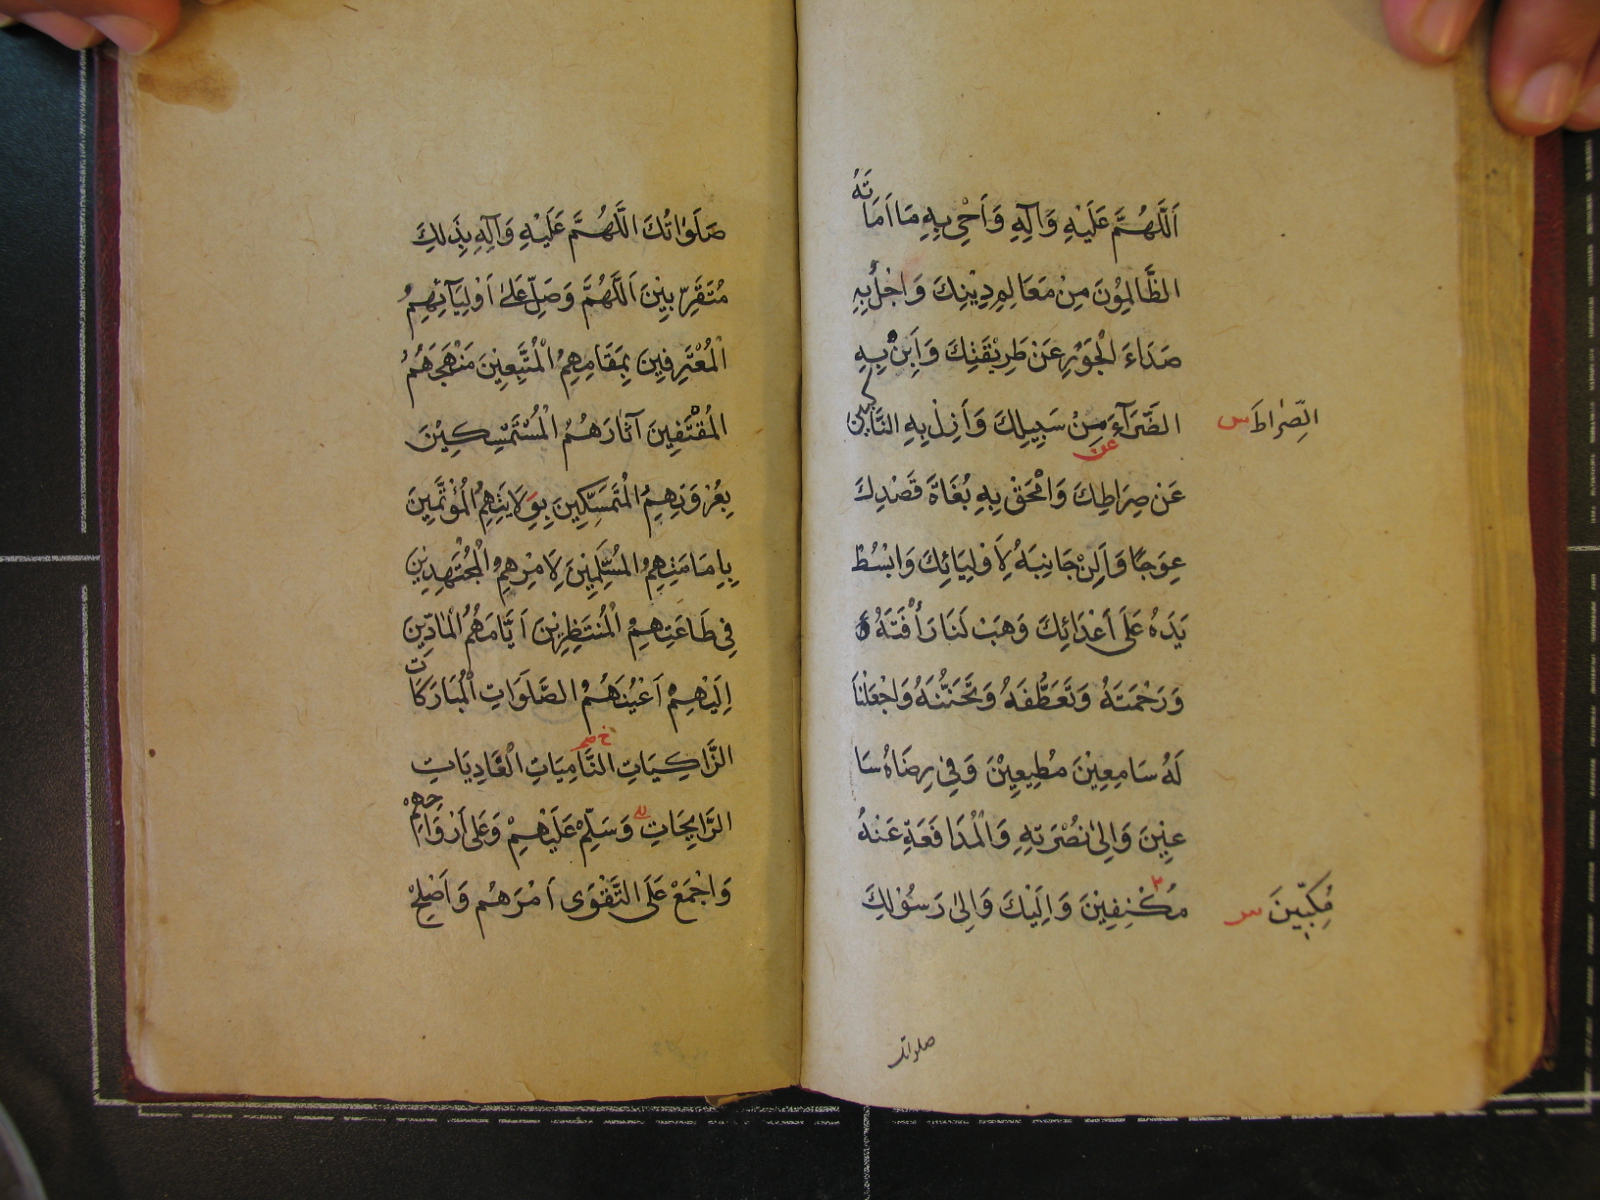 اَللّٰهُمَّ عَلَيْهِ وَآلِهِ وَاَحْيِ بِهِ مَا اَمَاتَهُ
الظَّالِمُوْنَ مِنْ مَعَالِمِ دِيْنِكَ وَاجْلُ بِهِ
صَدَاءَ الْجَوْرِ عَنْ طَرِيْقَتِكَ وَاَبِنْ بِهِ
الضَّرَّآءَ مِنْ سَبِيلِكَ وَاَزِلْ بِهِ النَّاكِبِينَ
عن
الصِّرَاطَ س
عَنْ صِرَاطِكَ وَامْحَقْ بِهِ بُغَاةَ قَصْدِكَ
عِوَجًا وَاَلِنْ جَانِبَهُ لِاَوْلِيَائِكَ وَابْسُطْ
يَدَهُ عَلَى اَعْدَائِكَ وَهَبْ لَنَا رَأْفَتَهُ
وَرَحْمَتَهُ وَتَعَطُّفَهُ وَتَحَنُّنَهُ وَاجْعَلْنَا
لَهُ سَامِعِيْنَ مُطِيعِيْنَ وَفِي رِضَاهُ سَا
عِيْنَ وَاِلىٰ نُصْرَتِهِ وَالْمُدَافَعَةِ عَنْهُ
مُكْنِفِيْنَ وَاِلَيْكَ وَاِلىٰ رَسُوْلِكَ
مُكِبِّينَ س
صلواتك
صَلَوَاتُكَ اللّٰهُمَّ عَلَيْهِ وَآلِهِ بِذٰلِكَ
مُتَقَرِّبِيْنَ اَللّٰهُمَّ وَصَلِّ عَلىٰ اَوْلِيَآئِهِمُ
الْمُعْتَرِفِينَ بِمَقَامِهِمُ الْمُتَّبِعِيْنَ مَنْهَجَهُمُ
الْمُقْتَفِينَ آثَارَهُمُ الْمُسْتَمْسِكِيْنَ
بِعُرْوَتِهِمُ الْمُتَمَسِّكِينَ بِوَلَايَتِهِمُ الْمُؤْتَمِّينَ
بِاِمَامَتِهِمُ الْمُسَلِّمِيْنَ لِاَمْرِهِمُ الْمُجْتَهِدِيْنَ
فِي طَاعَتِهِمُ الْمُنْتَظِرِيْنَ اَيَّامَهُمُ الْمَادِّينَ
اِلَيْهِمْ اَعْيُنَهُمُ الصَّلَوَاتِ الْمُبَارَكَاتِ
الزَّاكِيَاتِ النَّامِيَاتِ الْغَادِيَاتِ
الرَّايِحَاتِ وَسَلِّمْ عَلَيْهِمْ وَعَلى اَرْوَاحِهِمْ
وَاجْمَعْ عَلَى التَّقْوَى اَمْرَهُمْ وَاَصْلِحْ